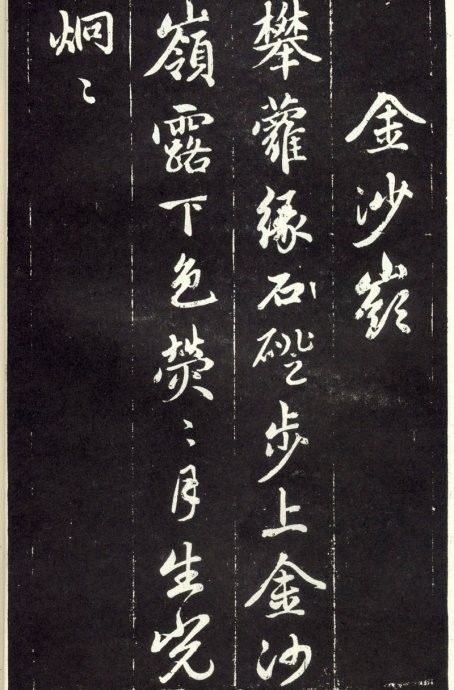 金沙嶺
攀蘿緣石磴步上金沙
嶺露下色熒〻月生光
炯〻